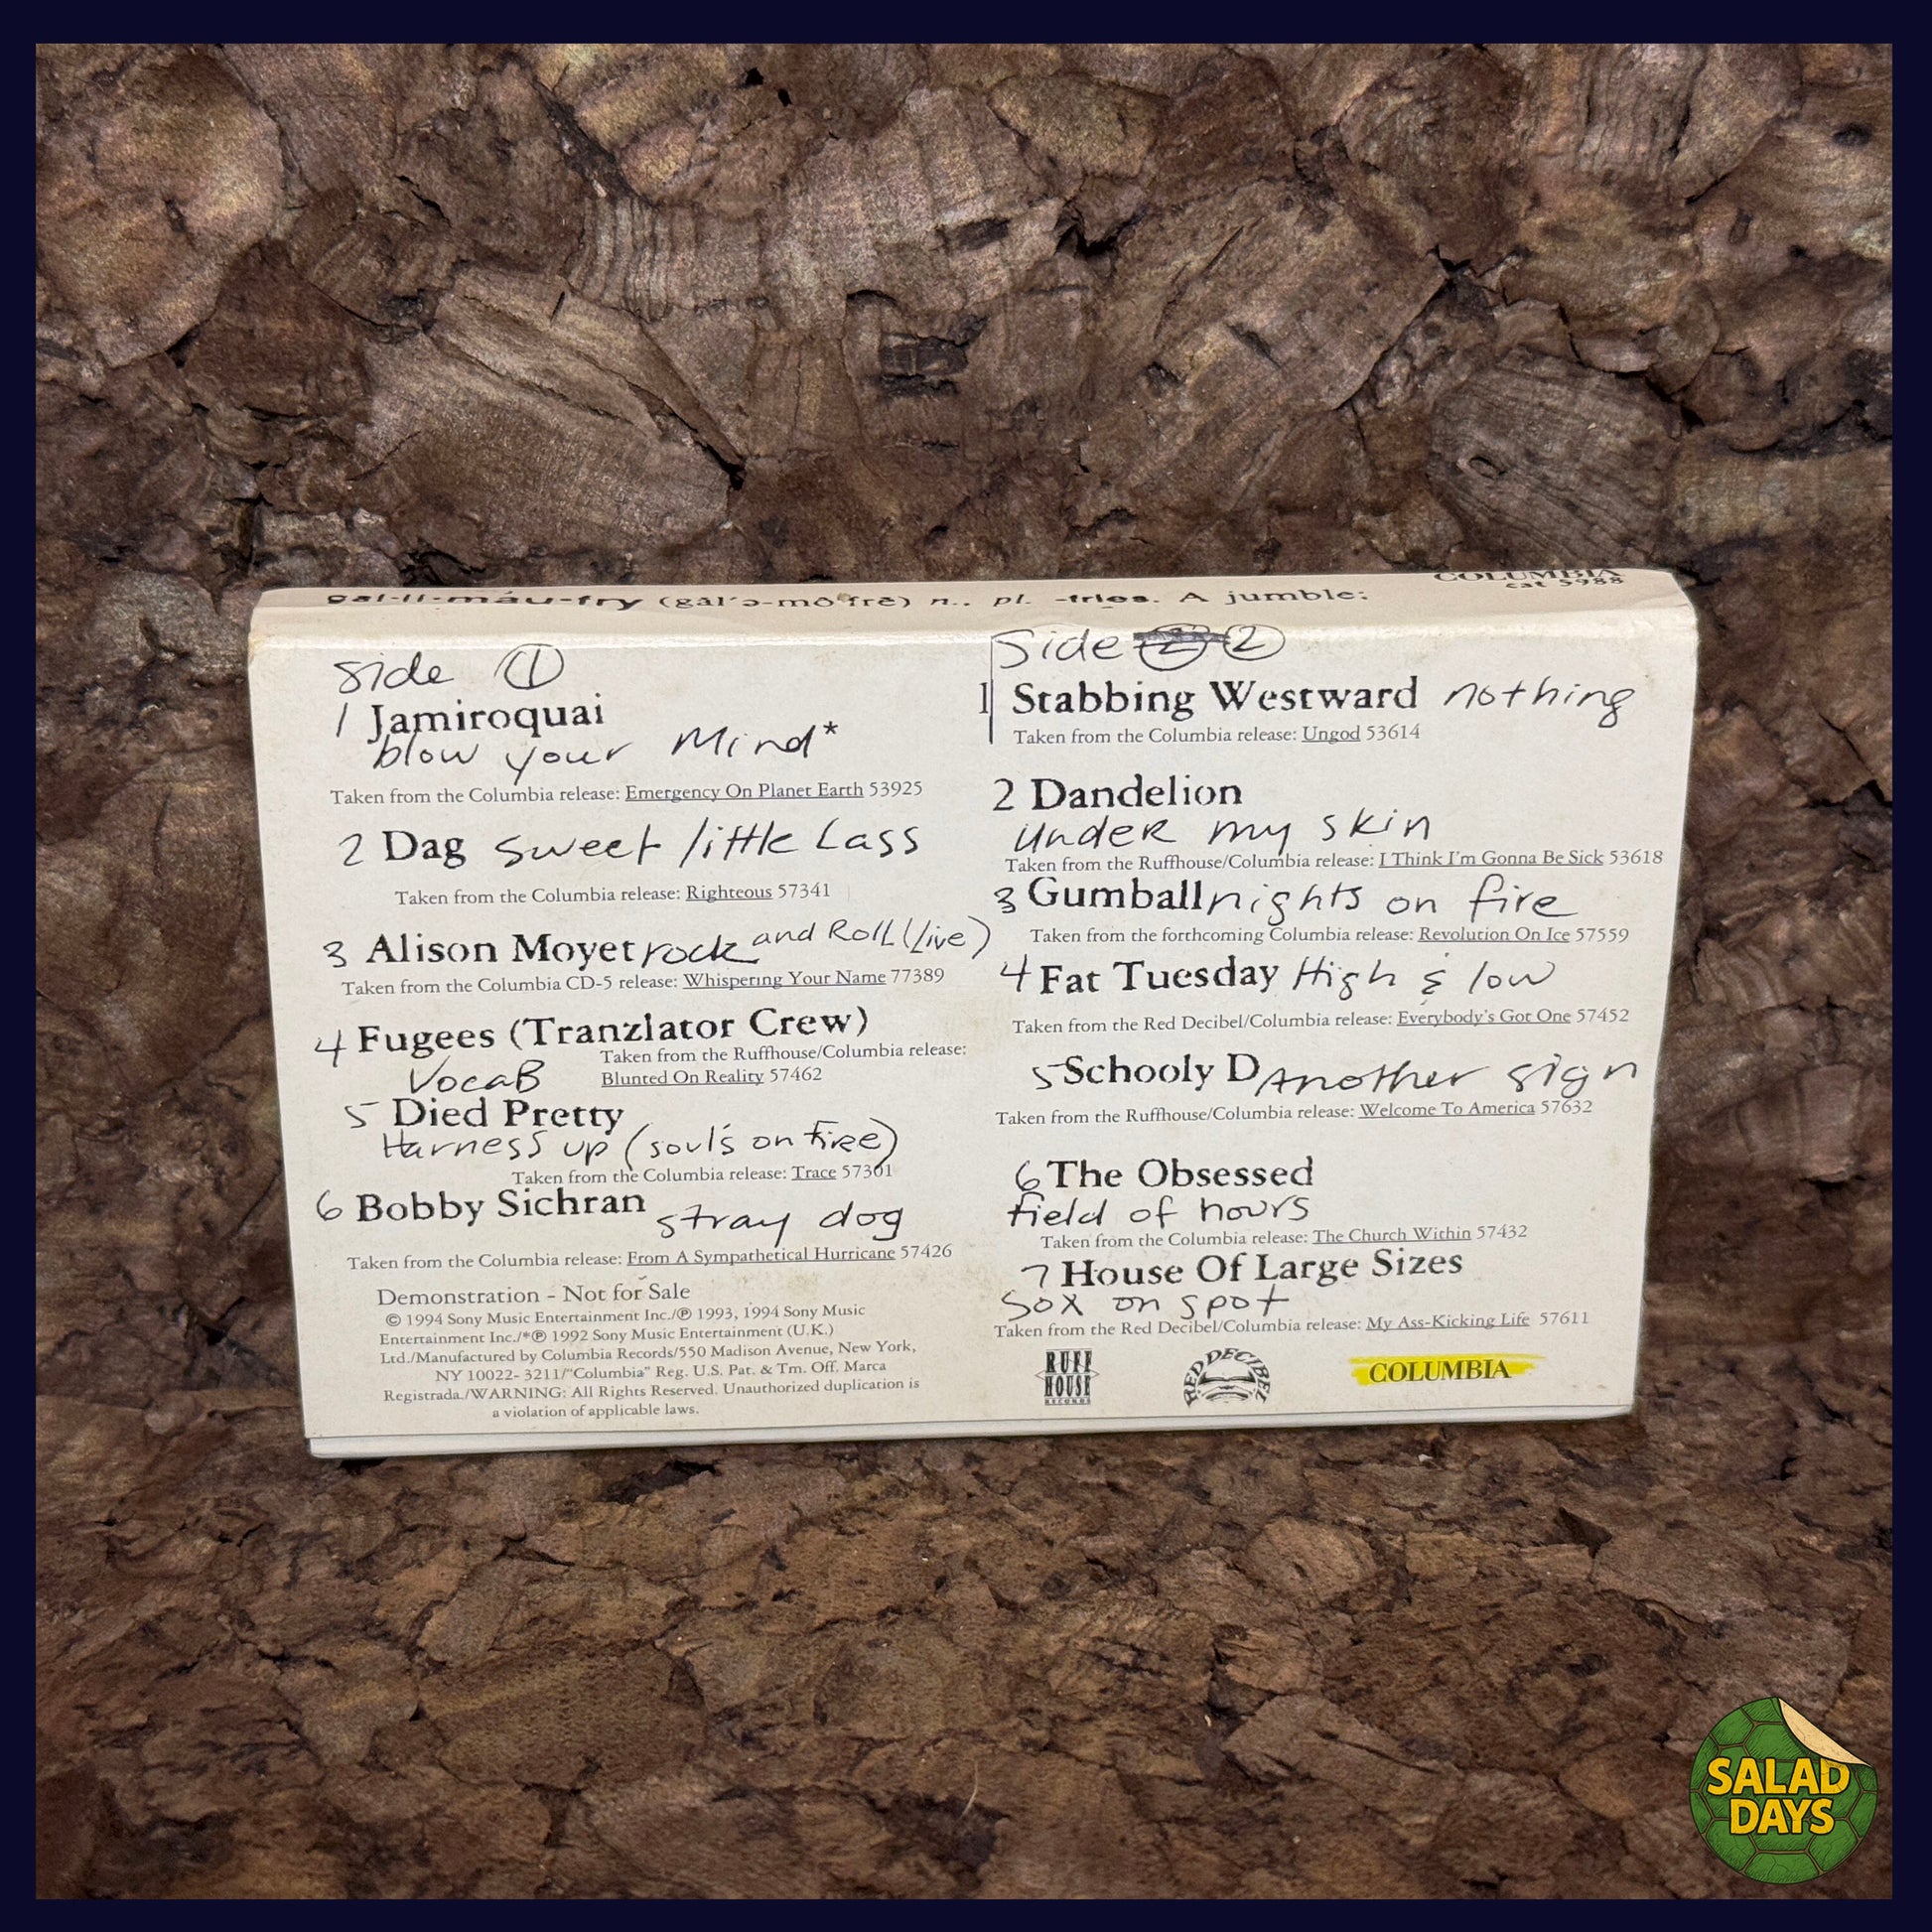 gal·li·máu·fry (găl′ə-mô′frē) n., pl. -fries. A jumble;
COLUMBIA
cat 5988
Side 1
1 Jamiroquai
blow your Mind*
Taken from the Columbia release: Emergency On Planet Earth 53925
2 Dag sweet little Lass
Taken from the Columbia release: Righteous 57341
3 Alison Moyet rock and Roll (Live)
Taken from the Columbia CD-5 release: Whispering Your Name 77389
4 Fugees (Tranzlator Crew)
Taken from the Ruffhouse/Columbia release:
VocaB Blunted On Reality 57462
5 Died Pretty
Harness up (soul's on fire)
Taken from the Columbia release: Trace 57301
6 Bobby Sichran stray dog
Taken from the Columbia release: From A Sympathetical Hurricane 57426
Demonstration - Not for Sale
© 1994 Sony Music Entertainment Inc./℗ 1993, 1994 Sony Music
Entertainment Inc./*℗ 1992 Sony Music Entertainment (U.K.)
Ltd./Manufactured by Columbia Records/550 Madison Avenue, New York,
NY 10022- 3211/"Columbia" Reg. U.S. Pat. & Tm. Off. Marca
Registrada./WARNING: All Rights Reserved. Unauthorized duplication is
a violation of applicable laws.
Side 2
1 Stabbing Westward nothing
Taken from the Columbia release: Ungod 53614
2 Dandelion
under my skin
Taken from the Ruffhouse/Columbia release: I Think I'm Gonna Be Sick 53618
3 Gumball nights on fire
Taken from the forthcoming Columbia release: Revolution On Ice 57559
4 Fat Tuesday High & low
Taken from the Red Decibel/Columbia release: Everybody's Got One 57452
5 Schooly D Another sign
Taken from the Ruffhouse/Columbia release: Welcome To America 57632
6 The Obsessed
field of hours
Taken from the Columbia release: The Church Within 57432
7 House Of Large Sizes
Sox on spot
Taken from the Red Decibel/Columbia release: My Ass-Kicking Life 57611
RUFF
HOUSE
RECORDS
RED DECIBEL
COLUMBIA
SALAD
DAYS